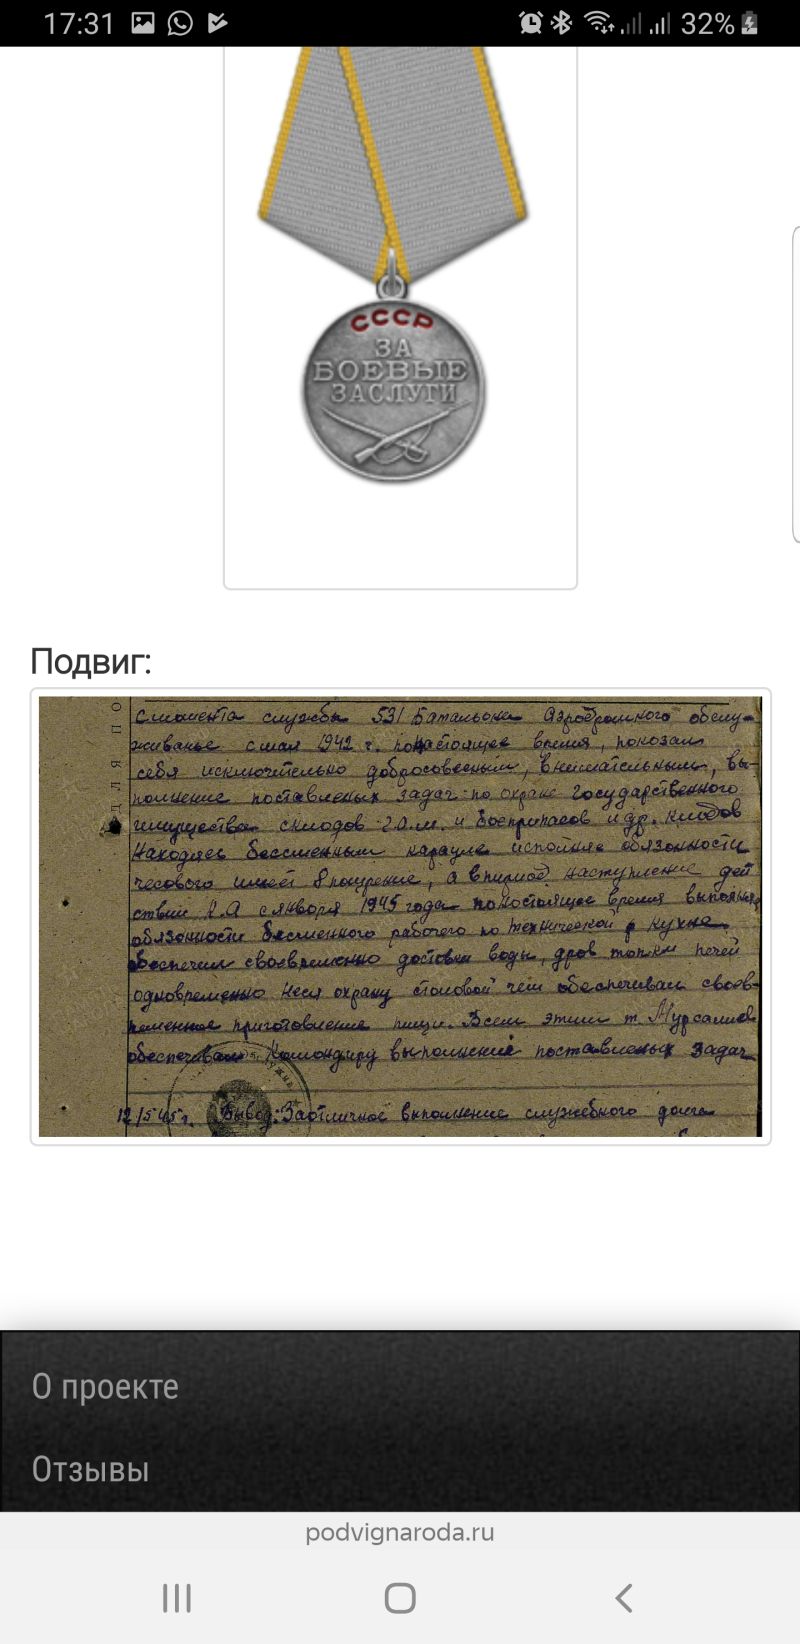 17:31
32%
СССР
ЗА
БОЕВЫЕ
ЗАСЛУГИ
Подвиг:
Смомента службы 531 Батальона Аэродромного обслу-
живанье с мая 1942 г. понастоящее время, показал
себя исключительно добросовесным, внимательным, вы-
полнение поставленых задач по охране государственного
имущества складов г.о.м. и боеприпасов и др. складов
Находясь бессменным карауле исполняя обязонности
чесового имеет 8 поощрение, а впириод наступление дей
ствии К.А с января 1945 года понастоящее время выполняя
обязонности бесменного рабочего по технической р кухне
обеспечил своевременно доставка воды, дров топки печей
одновременно неся охрану столовой чем обеспечивал своев-
ременное приготовление пищи. Всем этим т. Мурсалиев
обеспечивал Командиру выполнение поставленых задач
12/5 45 г. Вывод: Заотличное выполнение служебного долга
О проекте
Отзывы
podvignaroda.ru